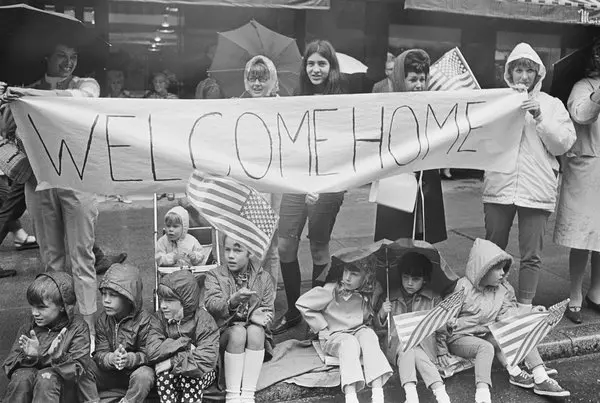 WELCOME HOME